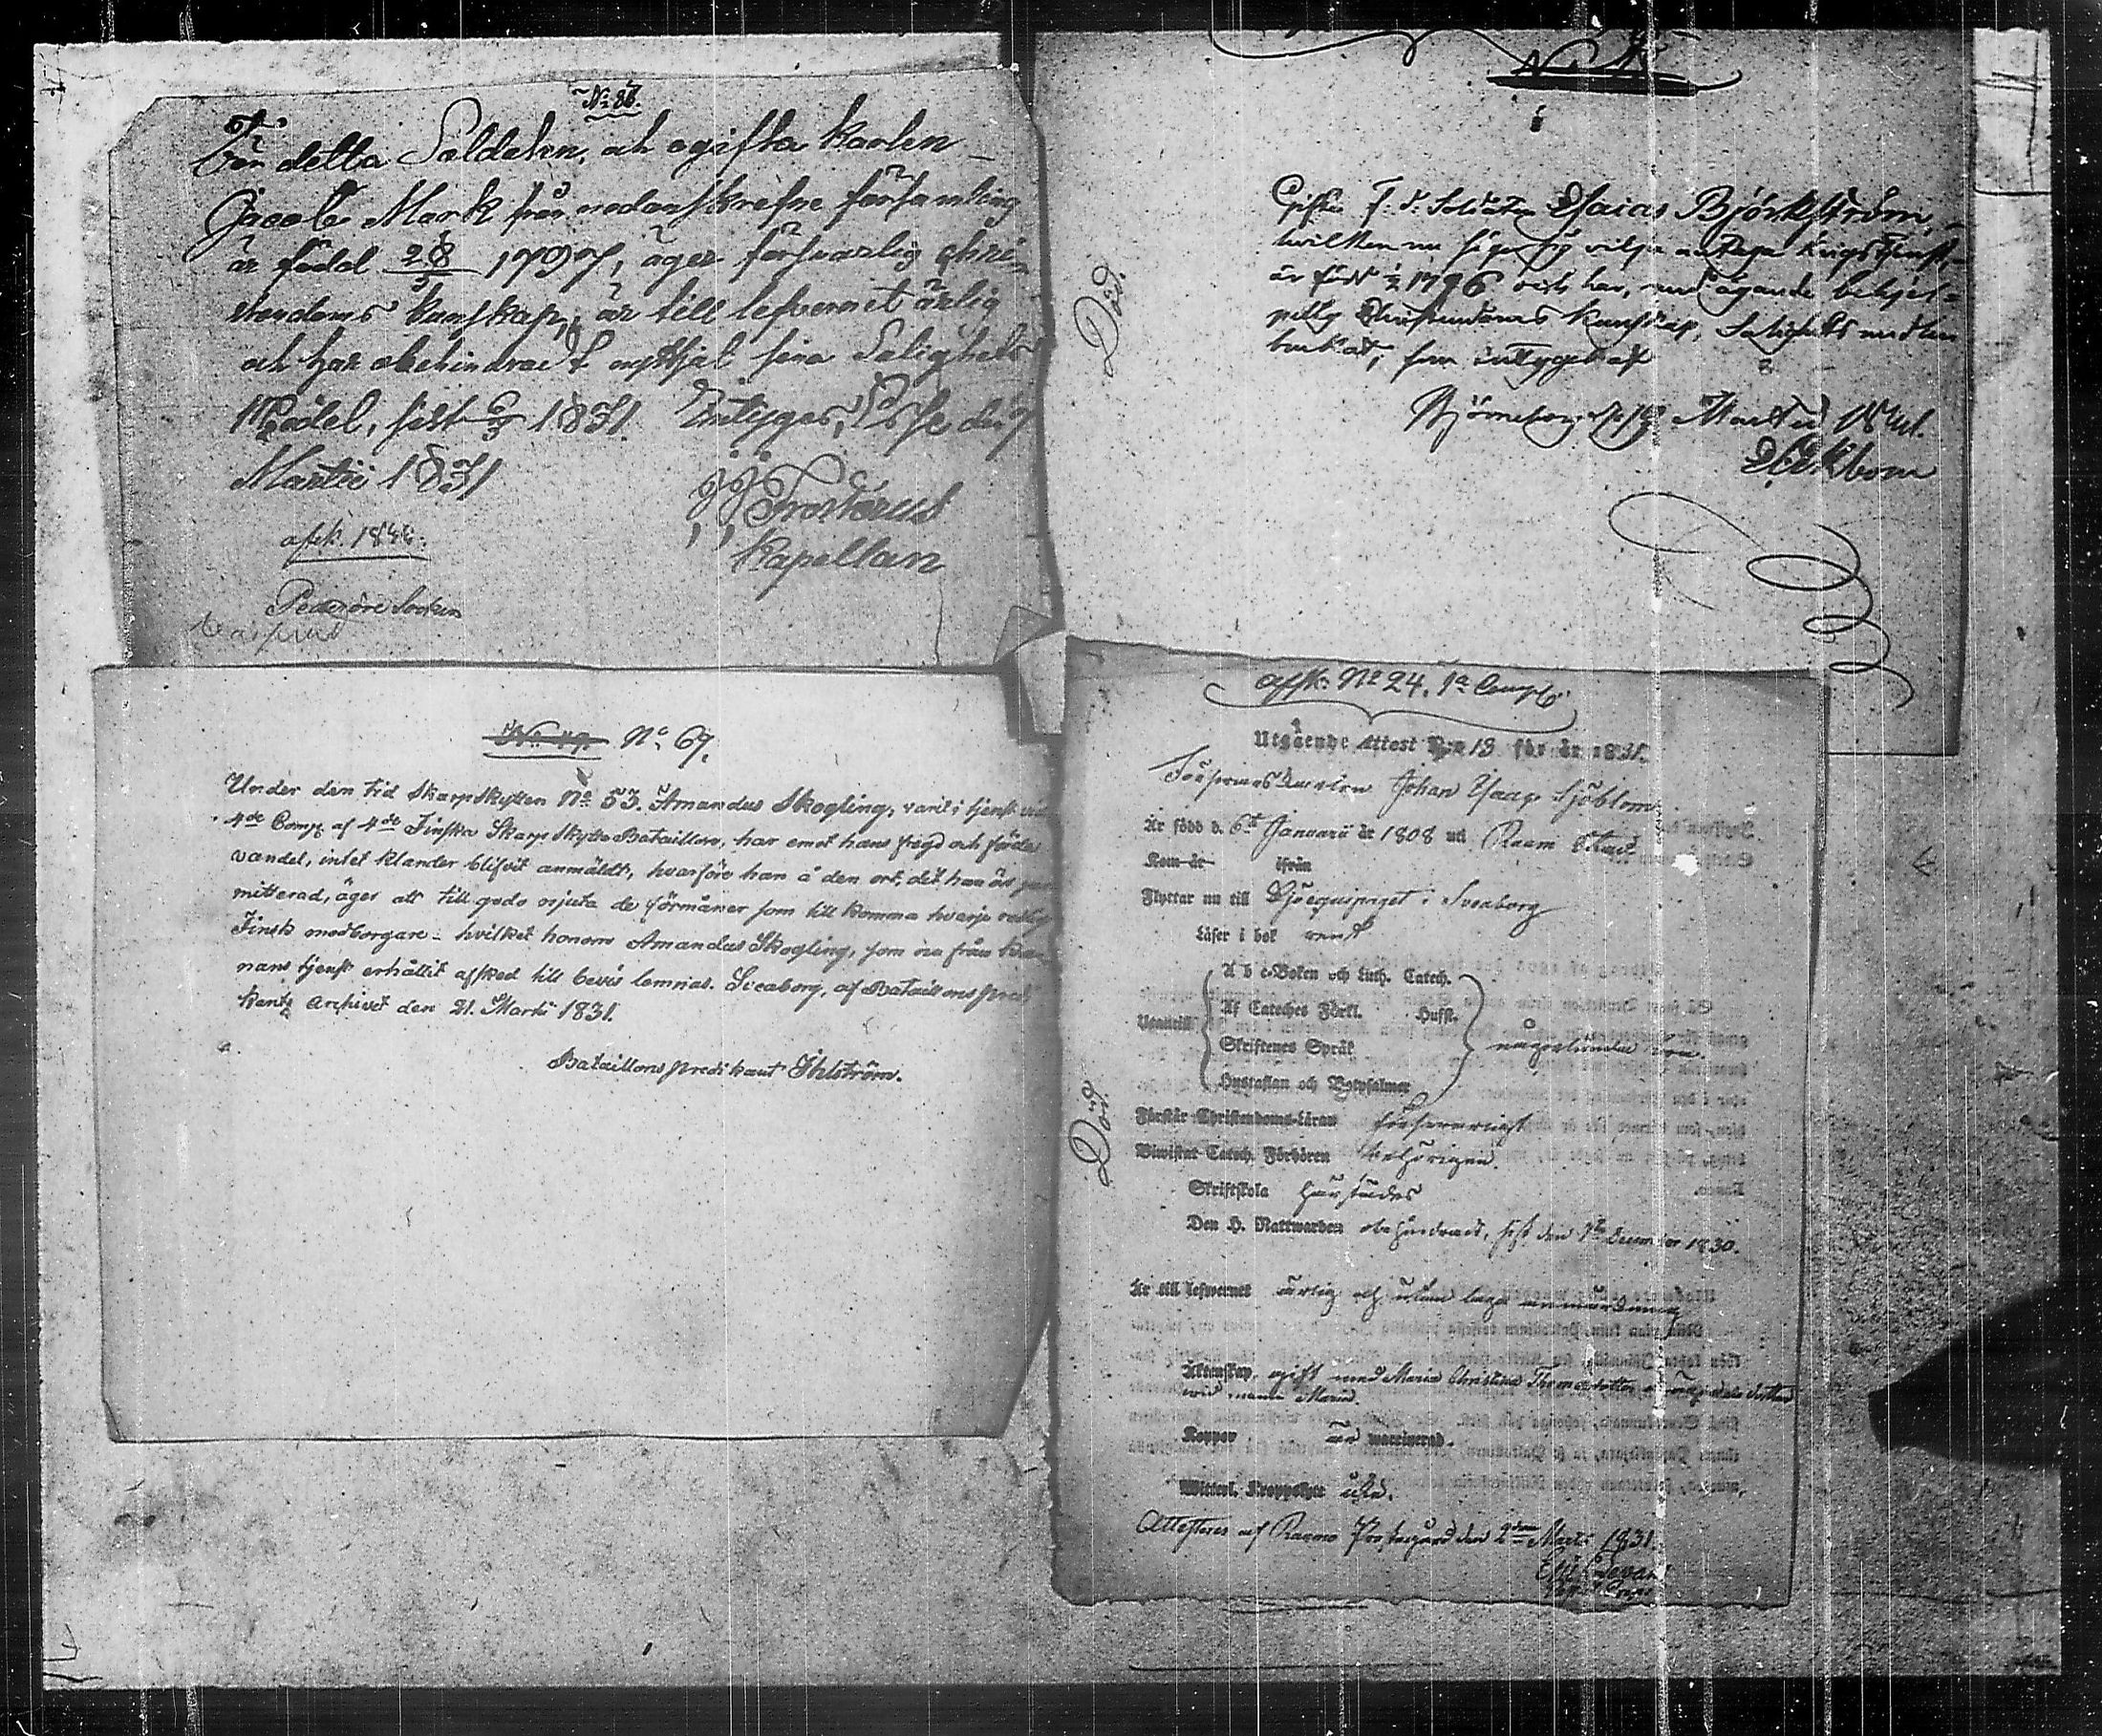 No 86.
För detta Soldaten, och ogifta karlen
Jacob Mark från nedanskrefne församling
är född 28/5 1797, äger försvarlig chri-
stendoms kunskap, är till lefvernet ärlig
och har obehindradt nyttjat sina Salighets
Medel, sist 6/3 1831. Intygas, Esse den 7
Martii 1831
J. J. Frosterus
Kapellan
afsk. 1844.
Pedersöre Socken
Gifte F. d. Soldaten Esaias Björkström,
hvilken nu säger sig vilja antaga Krigstjenst
är född 1/2 1796 och har, med ägande behjel-
pelig Christendoms kunskap, Salighets medlen
brukat, som intygas af
Björneborg d. Martii
Död.
No 67.
Under den tid Skarpskytten No 53. Amandus Skogling, varit i tjenst vid
4de Comp. af 4de Finska Skarpskytte Bataillon, har emot hans frejd och förda
vandel, intet klander blifvit anmäldt, hvarföre han å den ort, der han är
mitterad, äger att till godo njuta de förmåner som tillkomma hvarje redlig
Finsk medborgare - hvilket honom Amandus Skogling, som nu från Kro-
nans tjenst erhållit afsked till bevis lemnas. Sveaborg, af Bataillons predi
kants Archivet den 21. Martii 1831.
Bataillons predikant Ihlström.
Afsk. No 24. 1a Comp.
Utgående Attest N:o 13 för år 1831.
Johan Isaac Sjöblom
Är född d. 6te Januarii år 1808 uti Raumo Stad
Kom är ifrån
Flyttar nu till Sjöequipaget i Sveaborg
Läser i bok rent
A b c-Boken och Luth. Catech.
Af Cateches Förkl. Hufst.
Utantill
Skriftenes Språk
någorlunda bra.
Hustaflan och Botpsalmer
Förstår Christendoms-Läran försvarligt
Biwistat Catech. Förhören behörigen.
Skriftskola härstädes
Den H. Nattwarden obehindradt, sist den December 1830.
Är till lefwernet ärlig och utan laga anmärkning
Äktenskap, gift med Maria Christina Thomasdotter
Koppor är waccinerad.
Wittert. Kroppslyte utan.
Attesteras af Raumo Prostegård den 2dra Martii 1831.
Död.